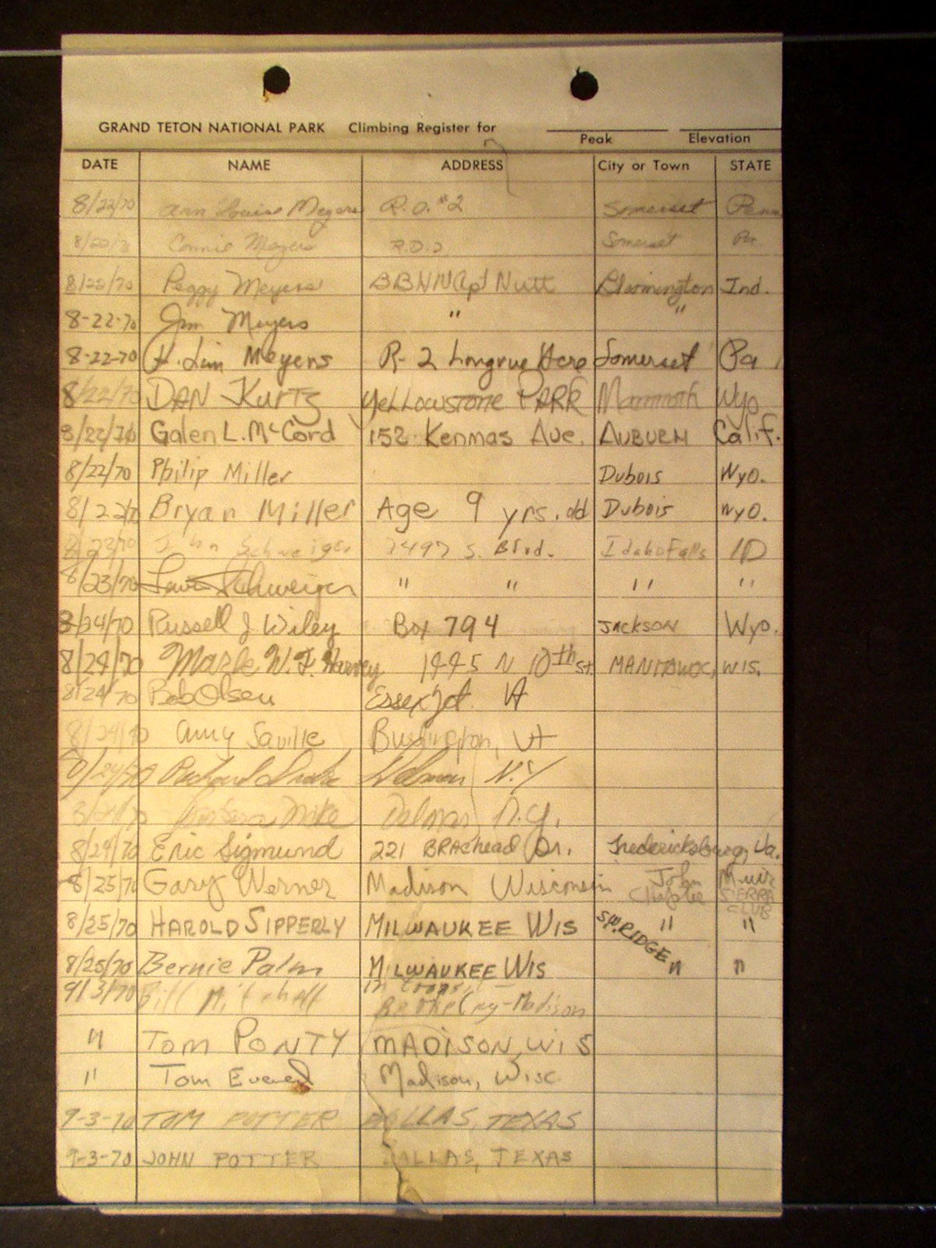 GRAND TETON NATIONAL PARK Climbing Register for
Peak Elevation
DATE NAME ADDRESS City or Town STATE
8/22/70 Ann Louise Meyers R.D. #2 Somerset Penn
Connie Meyers R.D.2 Somerset Pa
8/22/70 Peggy Meyers BBNW Apt Nutt Bloomington Ind.
8-22-70 Jim Meyers " "
8-22-70 Meyers R-2 Somerset Pa
8/22/70 DAN KURTZ YELLOWSTONE PARK Mammoth Wyo
8/22/70 Galen L. McCord 152 Kenmas Ave. AUBURN Calif.
8/22/70 Philip Miller Dubois Wyo.
8/22/70 Bryan Miller Age 9 yrs. old Dubois Wyo.
8/23/70 Schweiger 2497 S. Blvd. Idaho Falls ID
8/23/70 Schweiger " " " "
8/24/70 Russell J Wiley Box 794 JACKSON Wyo.
8/24/70 W.F. Harvey 1445 N 10th st. MANITOWOC, WIS.
8/24/70 Bob Olsen Essex Jct. Vt
8/24/70 Amy Saville Burlington, Vt
8/24/70 Richard Delmar N.Y
Delmar N.Y.
8/24/70 Eric Sigmund 221 BRAehead Dr. Fredericksburg, Va.
8/25/70 Gary Werner Madison Wisconsin John Muir
Chapter SIERRA
CLUB
8/25/70 HAROLD SIPPERLY MILWAUKEE WIS " "
SW. RIDGE
8/25/70 Bernie Palm MILWAUKEE WIS " "
9/3/70 Bill Madison
" TOM PONTY MADISON, WIS
" Tom Madison, Wisc.
9-3-70 TOM POTTER DALLAS, TEXAS
9-3-70 JOHN POTTER DALLAS, TEXAS